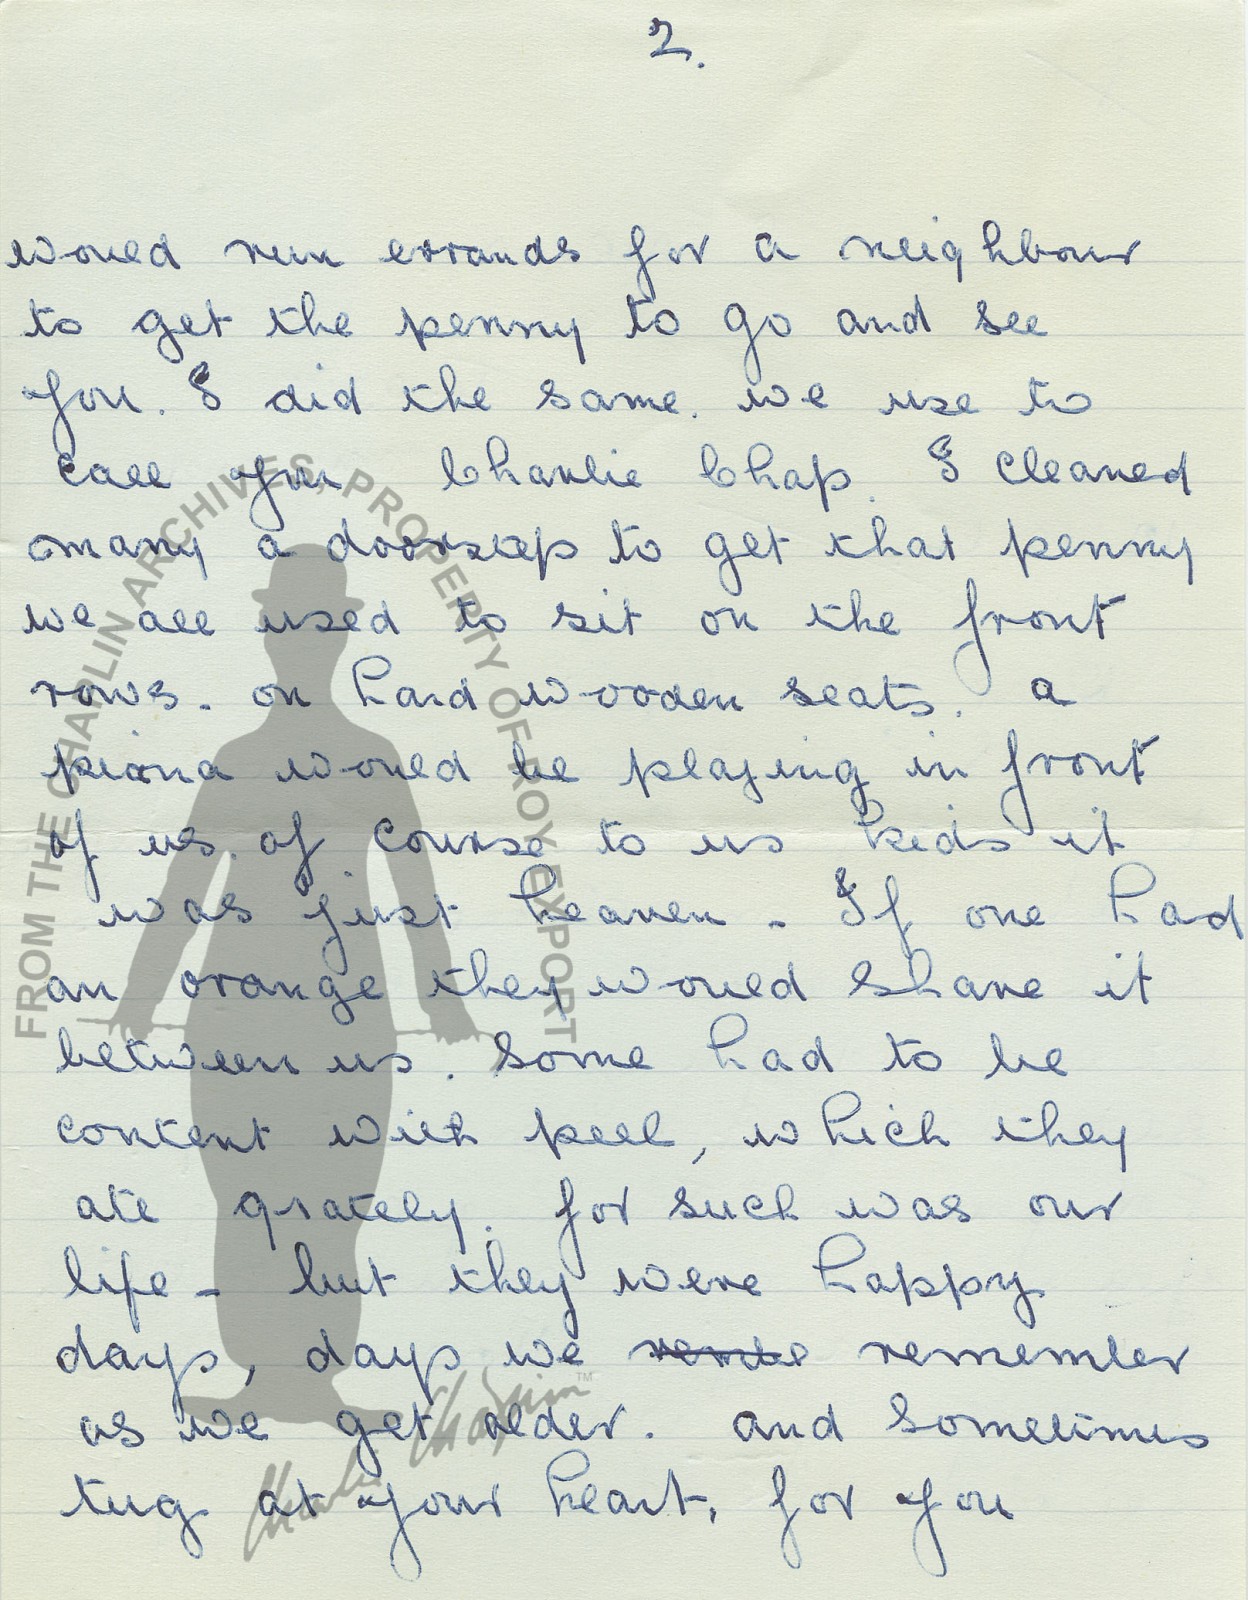 2.
would run errands for a neighbour
to get the penny to go and see
you. I did the same. we use to
call you Charlie Chap. I cleaned
many a doorstep to get that penny
we all used to sit on the front
rows. on hard wooden seats. a
piona would be playing in front
of us. of course to us kids it
was just heaven - If one had
an orange they would share it
between us. Some had to be
content with peel, which they
ate grately. for such was our
life - but they were happy
days, days we remember
as we get older. and sometimes
tug at your heart, for you
FROM THE CHAPLIN ARCHIVES, PROPERTY OF ROY EXPORT
Charlie Chaplin™